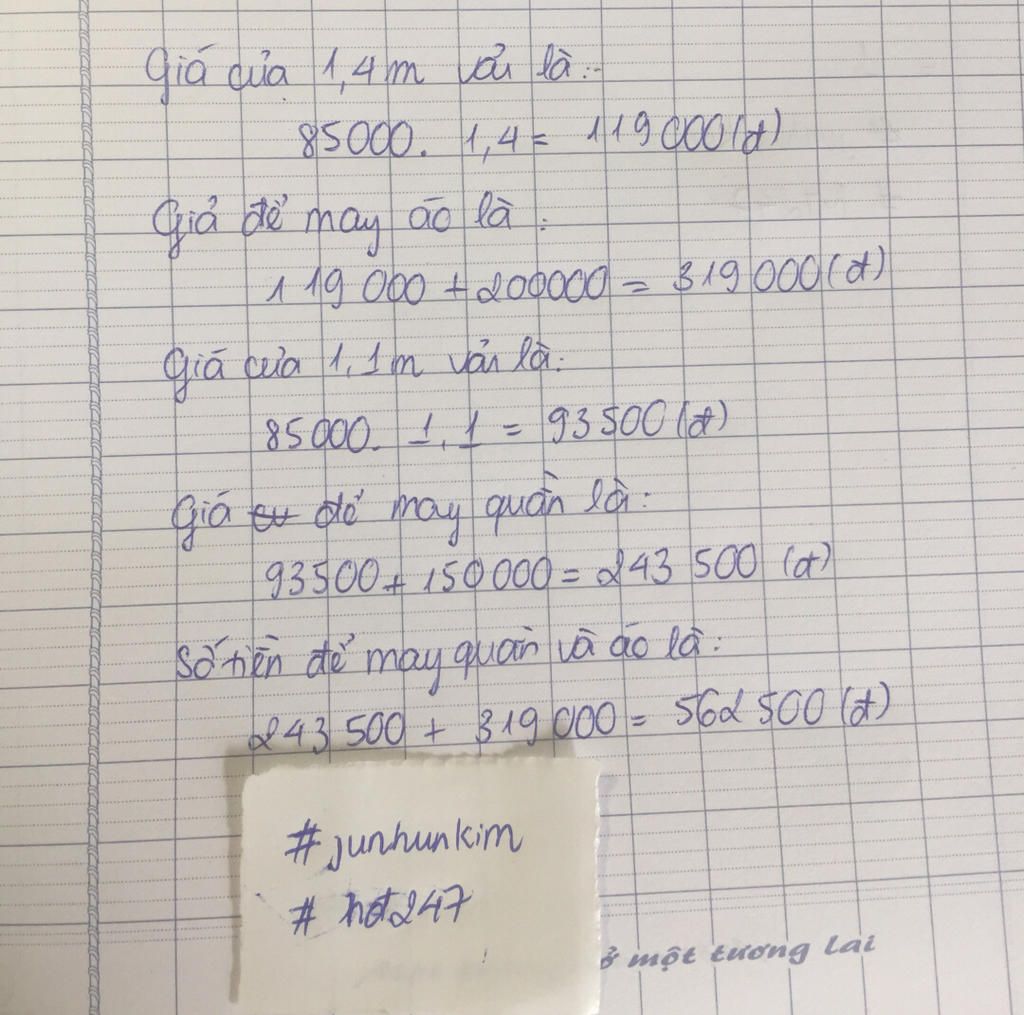 Giá của 1,4m vải là:
85000. 1,4 = 119 000 (đ)
Giá để may áo là:
119 000 + 200000 = 319 000 (đ)
Giá của 1,1m vải là:
85000. 1,1 = 93 500 (đ)
Giá để may quần là:
93500 + 150 000 = 243 500 (đ)
Số tiền để may quần và áo là:
243 500 + 319 000 = 562 500 (đ)
#junhunkim
# hđ247
ở một tương lai